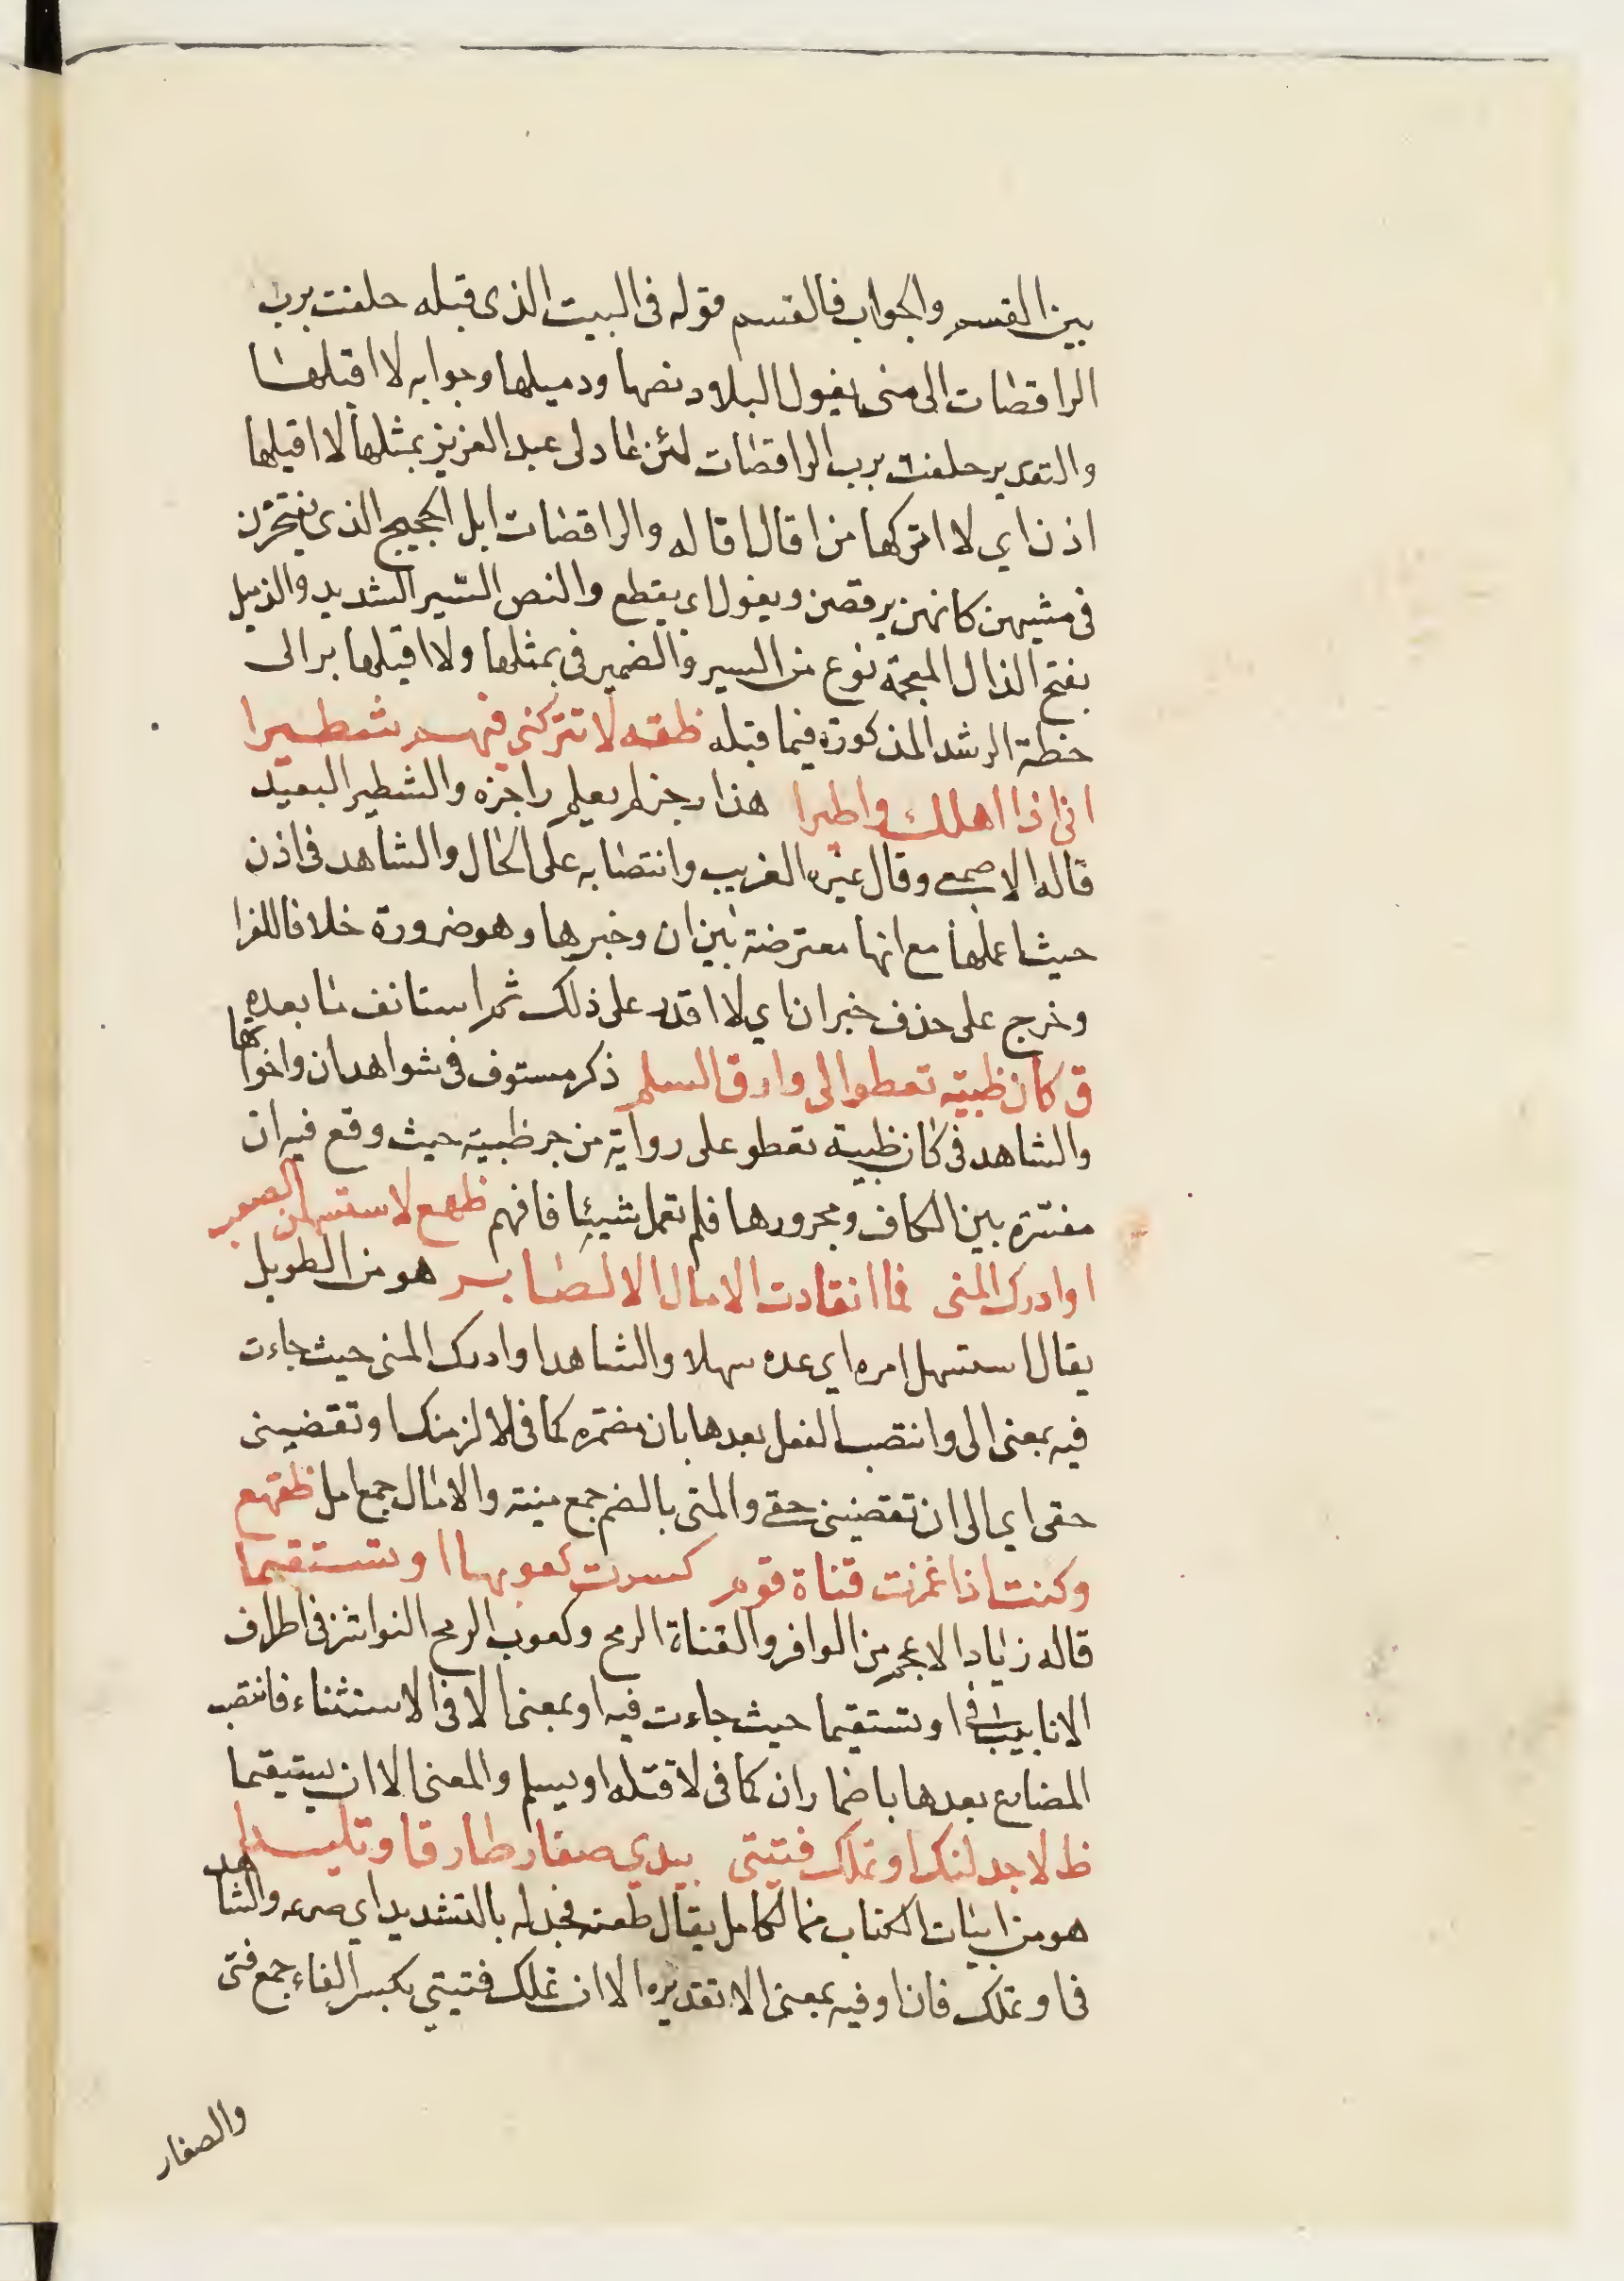 بين القسم والجواب فالقسم قوله في البيت الذي قبله حلفت برب
الراقصات الى منى يغول البلاد نصها وذميلها وجوابه لا اقيلها
والتقدير حلفت برب الراقصات لئن عاد لي عبد العزيز بمثلها لا اقيلها
اذن اي لا اتركها من اقال اقاله والراقصات ابل الحجيج الذي يفتخرن
في مشيهن كانهن يرقصن ويغول اي يقطع والنص السير الشديد والذميل
بفتح الذال المعجمة نوع من السير والضمير في بمثلها ولا اقيلها يرالى
خطة الرشد المذكورة فيما قبله ظقه لا تتركني فيهم شطيرا
اني اذا اهلك واطيرا هذا رجز لم يعلم راجزه والشطير البعيد
قاله الاصمعي وقال غيره الغريب وانتصابه على الحال والشاهد في اذن
حيث اعملها مع انها معترضة بين ان وخبرها وهو ضرورة خلافا للفرا
وخرج على حذف خبر ان اي لا اقدر على ذلك ثم استانف ما بعده
ق كان ظبية تعطوالى وارق السلم ذكر مستوف في شواهد ان واخواتها
والشاهد في كان ظبية تعطو على رواية من جر ظبية حيث وقع فيه ان
مفسرة بين الكاف ومجرورها فلم تعمل شيئا فافهم ظهع لاستسهلن الصعب
او ادرك المنى فما انقادت الامال الا لصابر هو من الطويل
يقال استسهل امره اي عده سهلا والشاهد او ادرك المنى حيث جاءت
فيه بمعنى الى وانتصب الفعل بعدها بان مضمره كما في لالزمنك او تقضيني
حقي اي الى ان تقضيني حقي والمنى بالضم جمع منية والامال جمع امل ظقهع
وكنت اذا غمزت قناة قوم كسرت كعوبها او تستقيما
قاله زياد الاعجم من الوافر والقناة الرمح وكعوب الرمح النواشز في اطراف
الانابيب في او تستقيما حيث جاءت فيه او بمعنى الا في الاستثناء فانتصب
المضارع بعدها باضمار ان كما في لاقتله او يسلم والمعنى الا ان يستيقما
ظ لاجدلنك او تملك فتيتي بيدي صغار طارقا وتليدا
هو من ابيات الكتاب من الكامل يقال طعنه فجدله بالتشديد اي صرعه والشاهد
في او تملك فان او فيه بمعنى الا تقديره الا ان تملك فتيتي بكسر الفاء جمع فتى
والصغار